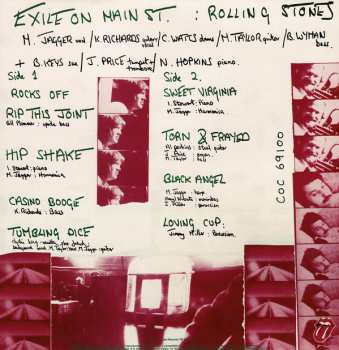 EXILE ON MAIN ST. : ROLLING STONES
M. JAGGER / K. RICHARDS guitar vocal / C. WATTS drums / M. TAYLOR guitar / B. WYMAN bass.
+ B. KEYS sax / J. PRICE trumpet trombone / N. HOPKINS piano.
Side 1
ROCKS OFF
RIP THIS JOINT
Bill Plummer : bass
HIP SHAKE
I. Stewart: piano
M. Jagger : Harmonica
CASINO BOOGIE
K. Richards : Bass
TUMBLING DICE
M. Taylor M. Jagger: guitar
Side 2.
SWEET VIRGINIA
I. Stewart: Piano
M. Jagger : Harmonica
TORN & FRAYED
Al Perkins : Steel guitar
J. Price : organ
M. Taylor : bass
BLACK ANGEL
M. Jagger : harp
J. Miller : percussion
LOVING CUP:
Jimmy Miller : Percussion
COC 69100